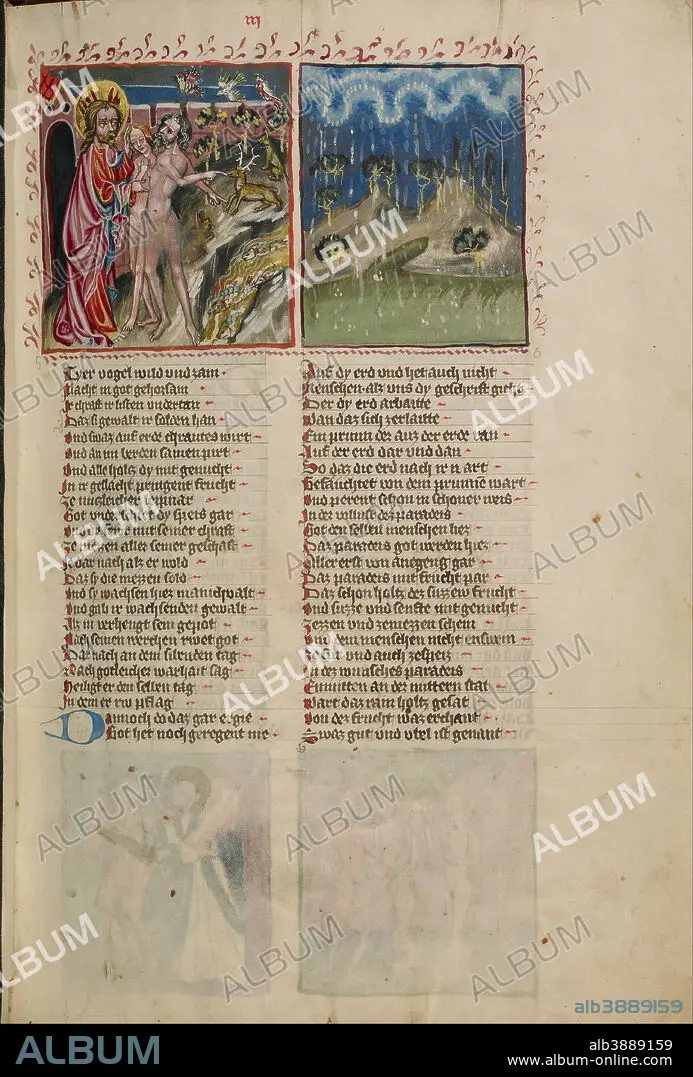 iij
Tyer vogel wild vnd zam
Macht in got gehorsam
Ir chraft ir listen vndertan
Daz si gewalt ir solden han
Vnd swaz auf erde chrautes wirt
Vnd an im berden samen pirt
Vnd alle holtz dy mit genucht
In ir geslächt pringent frucht
Ze nutzleicher
Got vnderschied dy speis gar
mit seiner chraft
Ze niezzen aller seiner geschaft
dar nach als er wold
Daz sy die niezzen sold
Vnd sy wachsen hiez manichualt
Vnd gab ir wachsenden gewalt
Als in verhengt sein gepot
Nach seinen werchen rwet got
Dar nach an dem sibenden tag
Nach gotleicher warhait sag
Heiligt er den selben tag
In dem er rw pflag
Dannoch do daz gar ergie
Got het noch geregent nie
Auf dy erd vnd het auch nicht
Menschen als vns dy geschrift
Der dy erd arbaitte
Wan daz sich zerlaitte
Ein prunn der auz der erde ran
Auf der erd dar vnd dan
So daz die erd nach ir art
Gefeuchtet von dem prunne wart
Vnd perent schon in schoner weis
In der wollust des paradeis
Got den selben menschen liez
Daz paradeis got werden hiez
Aller erst von anegeng gar
Daz paradeis mit frucht par
Daz schon holtz der suzzen frucht
Vnd suzze vnd senfte mit genucht
Zezzen vnd zeniezzen schein
Vnd dem menschen nicht enswein
vnd auch zespeis
In des wunsches paradeis
Enmitten an der mittern stat
Wart daz ram holtz gesat
Von der frucht waz erchant
Swaz gut vnd vbel ist genant
ALBUM
alb3889159
ALBUM
alb3889159
www.album-online.com